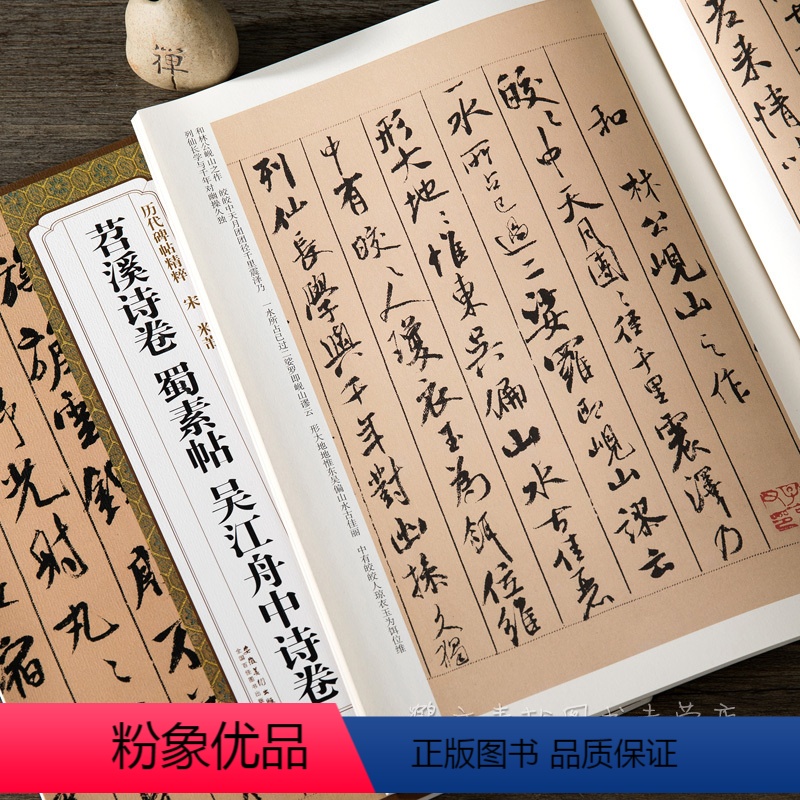 禅
若来情
和 林公峴山之作
皎〻中天月團〻徑千里震澤乃
一水所占已過二娑羅即峴山謬云
形大地〻惟東吳偏山水古佳麗
中有皎〻人瓊衣玉為餌位維
列仙長學與千年對幽操久獨
和林公岘山之作 皎皎中天月团团径千里震泽乃 一水所占已过二娑罗即岘山谬云 形大地地惟东吴偏山水古佳丽 中有皎皎人琼衣玉为饵位维
列仙长学与千年对幽操久独
历代碑帖精粹 宋 米芾
苕溪诗卷 蜀素帖 吴江舟中诗卷
光射丸〻
宿
粉象优品
正版图书 品质保证